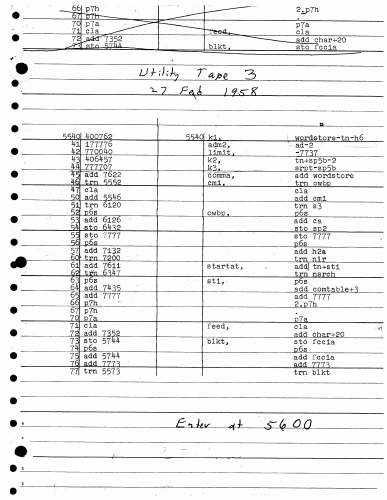 66 p7h 2.p7h
67 p7h .
70 p7a p7a
71 cla feed, cla
72 add 7352 add char+20
73 sto 5744 blkt, sto fccia
Utility Tape 3
27 Feb 1958
5540 400762 5540 k1, wordstore-tn-h6
41 177776 adm2, ad-2
42 770040 limit, -7737
43 406457 k2, tn+sp5b-2
44 777707 k3, srpt-sp5b
45 add 7622 comma, add wordstore
46 trn 5552 cm1, trn owbp
47 cla cla
50 add 5546 add cm1
51 trn 6120 trn s3
52 p6s owbp, p6s
53 add 6126 add ca
54 sto 6432 sto sp2
55 sto 7777 sto 7777
56 p6s p6s
57 add 7132 add h2a
60 trn 7200 trn nir
61 add 7611 startat, add tn+st1
62 trn 6347 trn nsrch
63 p6s st1, p6s
64 add 7435 add comtable+3
65 add 7777 add 7777
66 p7h 2.p7h
67 p7h .
70 p7a p7a
71 cla feed, cla
72 add 7352 add char+20
73 sto 5744 blkt, sto fccia
74 p6s p6s
75 add 5744 add fccia
76 add 7773 add 7773
77 trn 5573 trn blkt
Enter at 5600